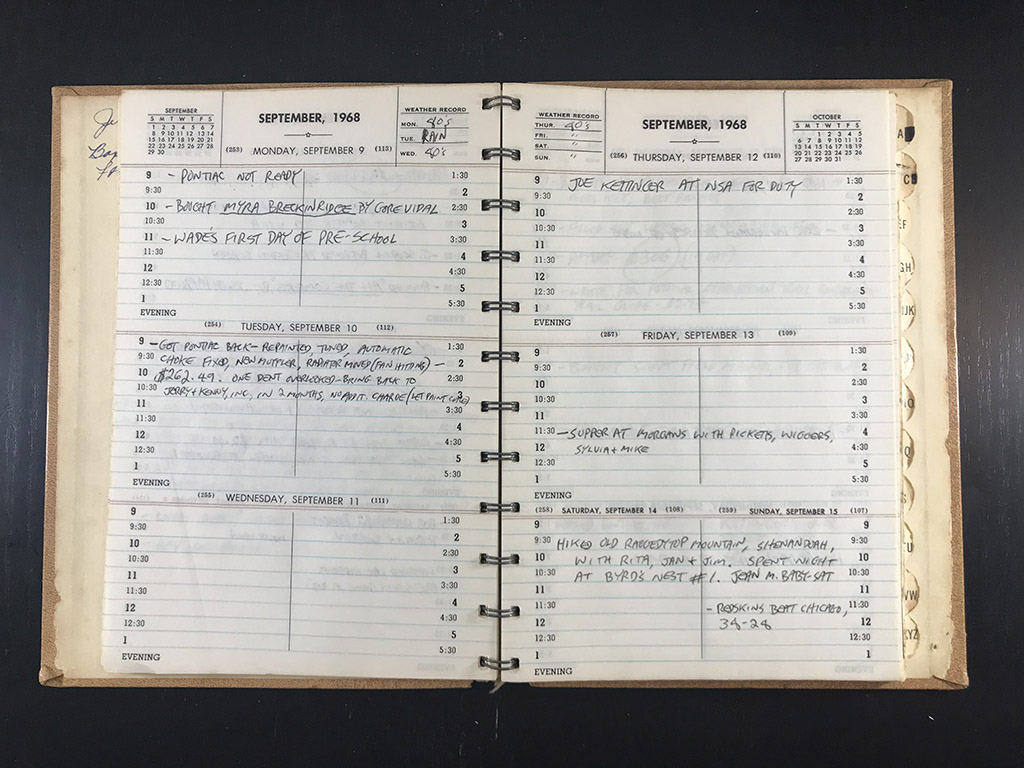 SEPTEMBER
S M T W T F S
1 2 3 4 5 6 7
8 9 10 11 12 13 14
15 16 17 18 19 20 21
22 23 24 25 26 27 28
29 30
SEPTEMBER, 1968
WEATHER RECORD
MON. 80's
TUE. RAIN
WED. 80's
(253) MONDAY, SEPTEMBER 9 (113)
9 - PONTIAC NOT READY 1:30
9:30 2
10 - BOUGHT MYRA BRECKINRIDGE BY GORE VIDAL 2:30
10:30 3
11 - WADE'S FIRST DAY OF PRE-SCHOOL 3:30
11:30 4
12 4:30
12:30 5
1 5:30
EVENING
(254) TUESDAY, SEPTEMBER 10 (112)
9 - GOT PONTIAC BACK - REPAINTED, TUNED, AUTOMATIC 1:30
9:30 CHOKE FIXED, NEW MUFFLER, RADIATOR MOVED (FAN HITTING) - 2
10 $262.49. ONE DENT OVERLOOKED - BRING BACK TO 2:30
10:30 JERRY & KENNY, INC. IN 2 MONTHS, NO ADDIT. CHARGE (LET PAINT CURE) 3
11 3:30
11:30 4
12 4:30
12:30 5
1 5:30
EVENING
(255) WEDNESDAY, SEPTEMBER 11 (111)
9 1:30
9:30 2
10 2:30
10:30 3
11 3:30
11:30 4
12 4:30
12:30 5
1 5:30
EVENING
WEATHER RECORD
THUR. 80's
FRI. "
SAT. "
SUN. "
SEPTEMBER, 1968
OCTOBER
S M T W T F S
1 2 3 4 5
6 7 8 9 10 11 12
13 14 15 16 17 18 19
20 21 22 23 24 25 26
27 28 29 30 31
(256) THURSDAY, SEPTEMBER 12 (110)
9 JOE KETTINGER AT NSA FOR DUTY 1:30
9:30 2
10 2:30
10:30 3
11 3:30
11:30 4
12 4:30
12:30 5
1 5:30
EVENING
(257) FRIDAY, SEPTEMBER 13 (109)
9 1:30
9:30 2
10 2:30
10:30 3
11 3:30
11:30 - SUPPER AT MORGANS WITH PICKETTS, WIGGERS, 4
12 SYLVIA & MIKE 4:30
12:30 5
1 5:30
EVENING
(258) SATURDAY, SEPTEMBER 14 (108) (259) SUNDAY, SEPTEMBER 15 (107)
9 9
9:30 HIKED OLD RAGGEDYTOP MOUNTAIN, SHENANDOAH, 9:30
10 WITH RITA, JAN & JIM. SPENT NIGHT 10
10:30 AT BYRD'S NEST #1. JEAN M. BABY-SAT 10:30
11 11
11:30 - REDSKINS BEAT CHICAGO, 11:30
12 38-28 12
12:30 12:30
1 1
EVENING
A
C
EF
GH
IJK
S
TU
VW
XYZ